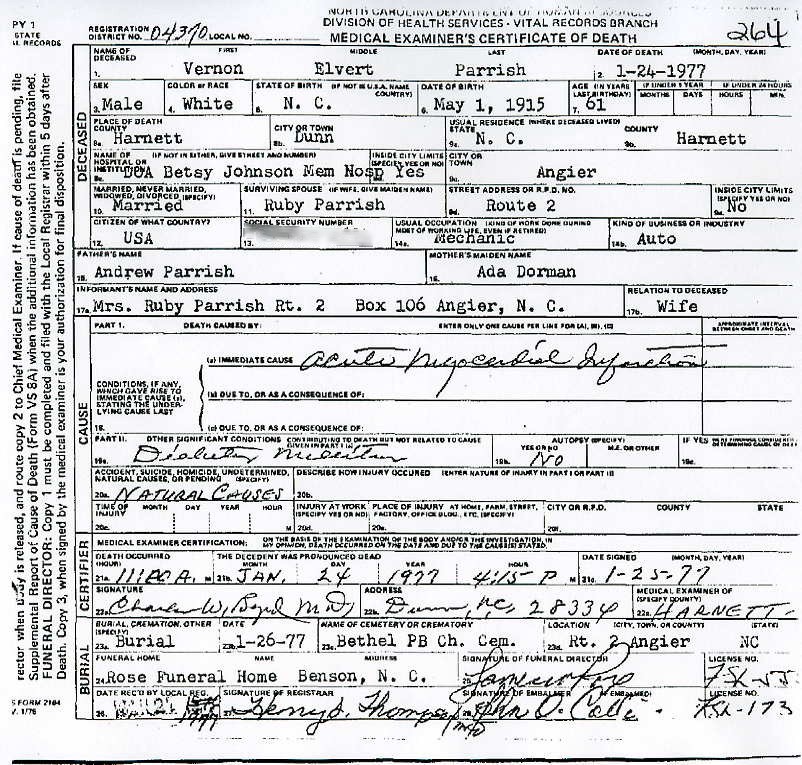 NORTH CAROLINA DEPARTMENT OF HUMAN RESOURCES
DIVISION OF HEALTH SERVICES - VITAL RECORDS BRANCH
MEDICAL EXAMINER'S CERTIFICATE OF DEATH
264
PY 1
STATE
RECORDS
REGISTRATION
DISTRICT NO. 04370 LOCAL NO.
NAME OF DECEASED FIRST MIDDLE LAST DATE OF DEATH (MONTH, DAY, YEAR)
1. Vernon Elvert Parrish 2. 1-24-1977
SEX COLOR OR RACE STATE OF BIRTH (IF NOT IN U.S.A. NAME COUNTRY) DATE OF BIRTH AGE (IN YEARS LAST BIRTHDAY) IF UNDER 1 YEAR IF UNDER 24 HOURS
MONTHS DAYS HOURS MIN.
3. Male 4. White 5. N. C. 6. May 1, 1915 7. 61
DECEASED
PLACE OF DEATH COUNTY CITY OR TOWN USUAL RESIDENCE (WHERE DECEASED LIVED) STATE COUNTY
8a. Harnett 8b. Dunn 9a. N. C. 9b. Harnett
NAME OF HOSPITAL OR INSTITUTION (IF NOT IN EITHER, GIVE STREET AND NUMBER) INSIDE CITY LIMITS (SPECIFY YES OR NO) CITY OR TOWN
DOA Betsy Johnson Mem Hosp Yes Angier
MARRIED, NEVER MARRIED, WIDOWED, DIVORCED (SPECIFY) SURVIVING SPOUSE (IF WIFE, GIVE MAIDEN NAME) STREET ADDRESS OR R.F.D. NO. INSIDE CITY LIMITS (SPECIFY YES OR NO)
10. Married 11. Ruby Parrish 9d. Route 2 9e. No
CITIZEN OF WHAT COUNTRY? SOCIAL SECURITY NUMBER USUAL OCCUPATION (KIND OF WORK DONE DURING MOST OF WORKING LIFE, EVEN IF RETIRED) KIND OF BUSINESS OR INDUSTRY
12. USA 13. 14a. Mechanic 14b. Auto
FATHER'S NAME MOTHER'S MAIDEN NAME
15. Andrew Parrish 16. Ada Dorman
INFORMANT'S NAME AND ADDRESS RELATION TO DECEASED
17a. Mrs. Ruby Parrish Rt. 2 Box 106 Angier, N. C. 17b. Wife
PART I. DEATH CAUSED BY: ENTER ONLY ONE CAUSE PER LINE FOR (A), (B), (C) APPROXIMATE INTERVAL BETWEEN ONSET AND DEATH
(a) IMMEDIATE CAUSE Acute Myocardial Infarction
CAUSE
CONDITIONS, IF ANY, WHICH GAVE RISE TO IMMEDIATE CAUSE (a), STATING THE UNDERLYING CAUSE LAST
(b) DUE TO, OR AS A CONSEQUENCE OF:
18. (c) DUE TO, OR AS A CONSEQUENCE OF:
PART II. OTHER SIGNIFICANT CONDITIONS CONTRIBUTING TO DEATH BUT NOT RELATED TO CAUSE GIVEN IN PART I (a) AUTOPSY (SPECIFY) YES OR NO M.E. OR OTHER IF YES WERE FINDINGS CONSIDERED DETERMINING CAUSE OF
19a. Diabetes Mellitus 19b. NO 19c.
ACCIDENT, SUICIDE, HOMICIDE, UNDETERMINED, NATURAL CAUSES, OR PENDING (SPECIFY) DESCRIBE HOW INJURY OCCURED (ENTER NATURE OF INJURY IN PART I OR PART II)
20a. NATURAL CAUSES 20b.
TIME OF INJURY MONTH DAY YEAR HOUR INJURY AT WORK (SPECIFY YES OR NO) PLACE OF INJURY AT HOME, FARM, STREET, FACTORY, OFFICE BLDG., ETC. (SPECIFY) CITY OR R.F.D. COUNTY STATE
20c. M 20d. 20e. 20f.
CERTIFIER
MEDICAL EXAMINER CERTIFICATION: ON THE BASIS OF THE EXAMINATION OF THE BODY AND/OR THE INVESTIGATION, IN MY OPINION, DEATH OCCURRED ON THE DATE AND DUE TO THE CAUSE(S) STATED.
DEATH OCCURRED (HOUR) THE DECEDENT WAS PRONOUNCED DEAD MONTH DAY YEAR HOUR DATE SIGNED (MONTH, DAY, YEAR)
21a. A. M 21b. JAN. 24 1977 4:15 P M 21c. 1-25-77
SIGNATURE ADDRESS MEDICAL EXAMINER OF (SPECIFY COUNTY)
22a. Charles W. Byrd M.D. 22b. Dunn, N.C. 28334 22c. HARNETT
BURIAL
BURIAL, CREMATION, OTHER (SPECIFY) DATE NAME OF CEMETERY OR CREMATORY LOCATION (CITY, TOWN, OR COUNTY) (STATE)
23a. Burial 23b. 1-26-77 23c. Bethel PB Ch. Cem. 23d. Rt. 2 Angier NC
FUNERAL HOME NAME ADDRESS SIGNATURE OF FUNERAL DIRECTOR LICENSE NO.
24. Rose Funeral Home Benson, N. C. 25.
DATE REC'D BY LOCAL REG. SIGNATURE OF REGISTRAR SIGNATURE OF EMBALMER (IF EMBALMED) LICENSE NO.
26. 27. Henry S. Thompson
S FORM 2104
1/76
rector when body is released, and route copy 2 to Chief Medical Examiner. If cause of death is pending, file
Supplemental Report of Cause of Death (Form VS 8A) when the additional information has been obtained.
FUNERAL DIRECTOR: Copy 1 must be completed and filed with the Local Registrar within 5 days after
Death. Copy 3, when signed by the medical examiner is your authorization for final disposition.